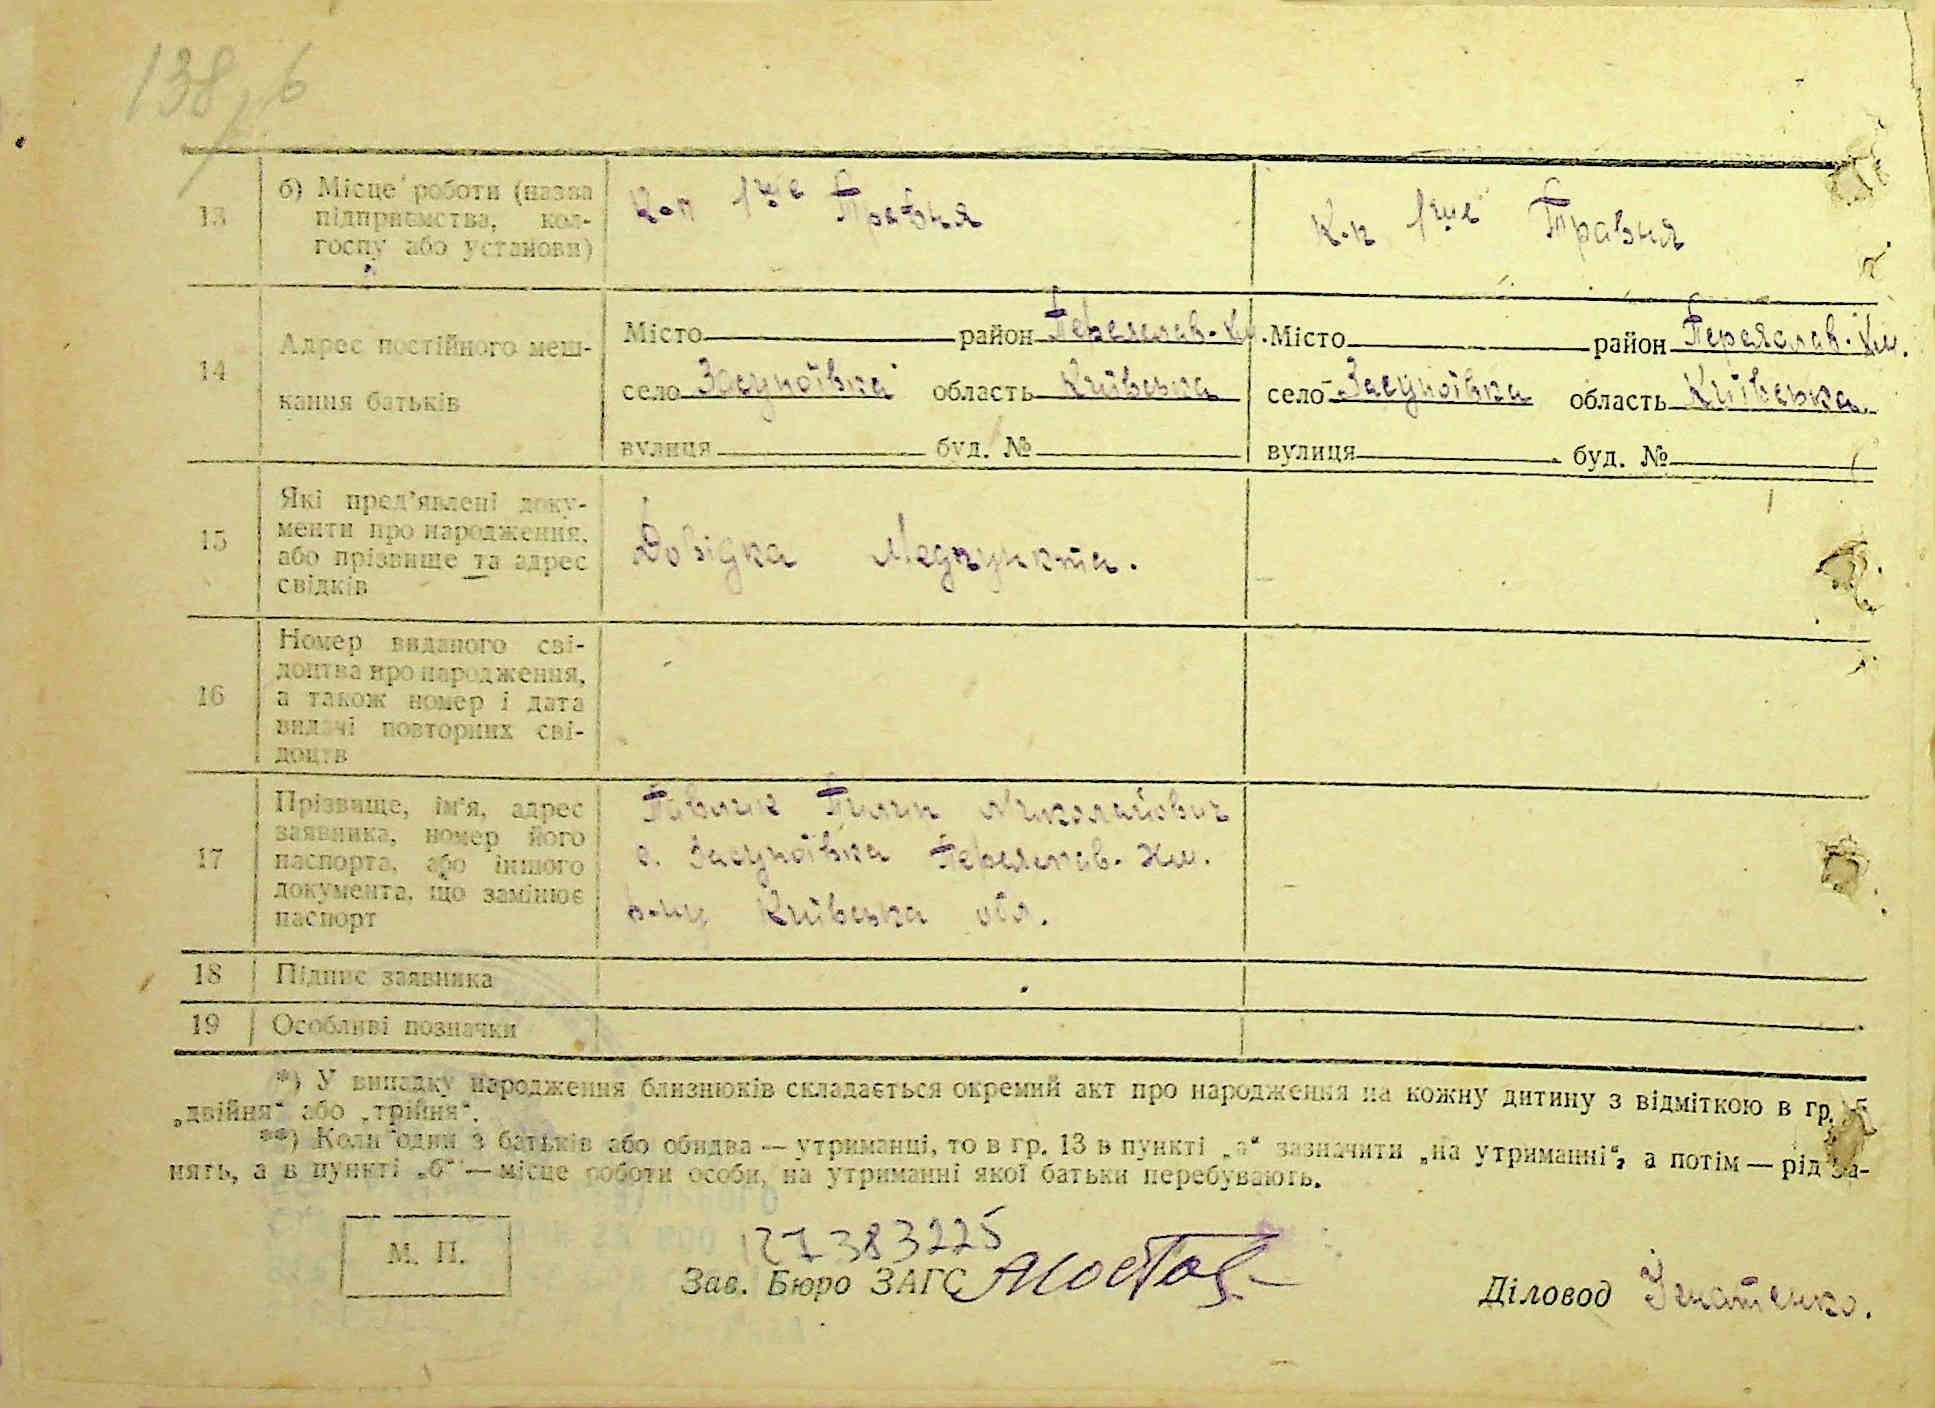 138 б
13
б) Місце роботи (назва
підприємства, кол-
госпу або установи)
К-п 1ше Травня
К-п 1ше Травня
14
Адрес постійного меш-
кання батьків
Місто район Переяслав-Хм.
село Засупоївка область Київська
вулиця буд. №
Місто район Переяслав-Хм.
село Засупоївка область Київська
вулиця буд. №
15
Які пред'явлені доку-
менти про народження,
або прізвище та адрес
свідків
Довідка Медпункта.
16
Номер виданого сві-
доцтва про народження,
а також номер і дата
видачі повторних сві-
доцтв
17
Прізвище, ім'я, адрес
заявника, номер його
паспорта, або іншого
документа, що замінює
паспорт
Пилип Миколайович
с. Засупоївка Переяслав-Хм.
Київська обл.
18
Підпис заявника
19
Особливі позначки
*) У випадку народження близнюків складається окремий акт про народження на кожну дитину з відміткою в гр. 5
„двійня“ або „трійня“.
**) Коли один з батьків або обидва — утриманці, то в гр. 13 в пункті „а“ зазначити „на утриманні“, а потім — рід за-
нять, а в пункті „б“ — місце роботи особи, на утриманні якої батьки перебувають.
М. П.
127383225
Зав. Бюро ЗАГС
Діловод Ігнатенко.